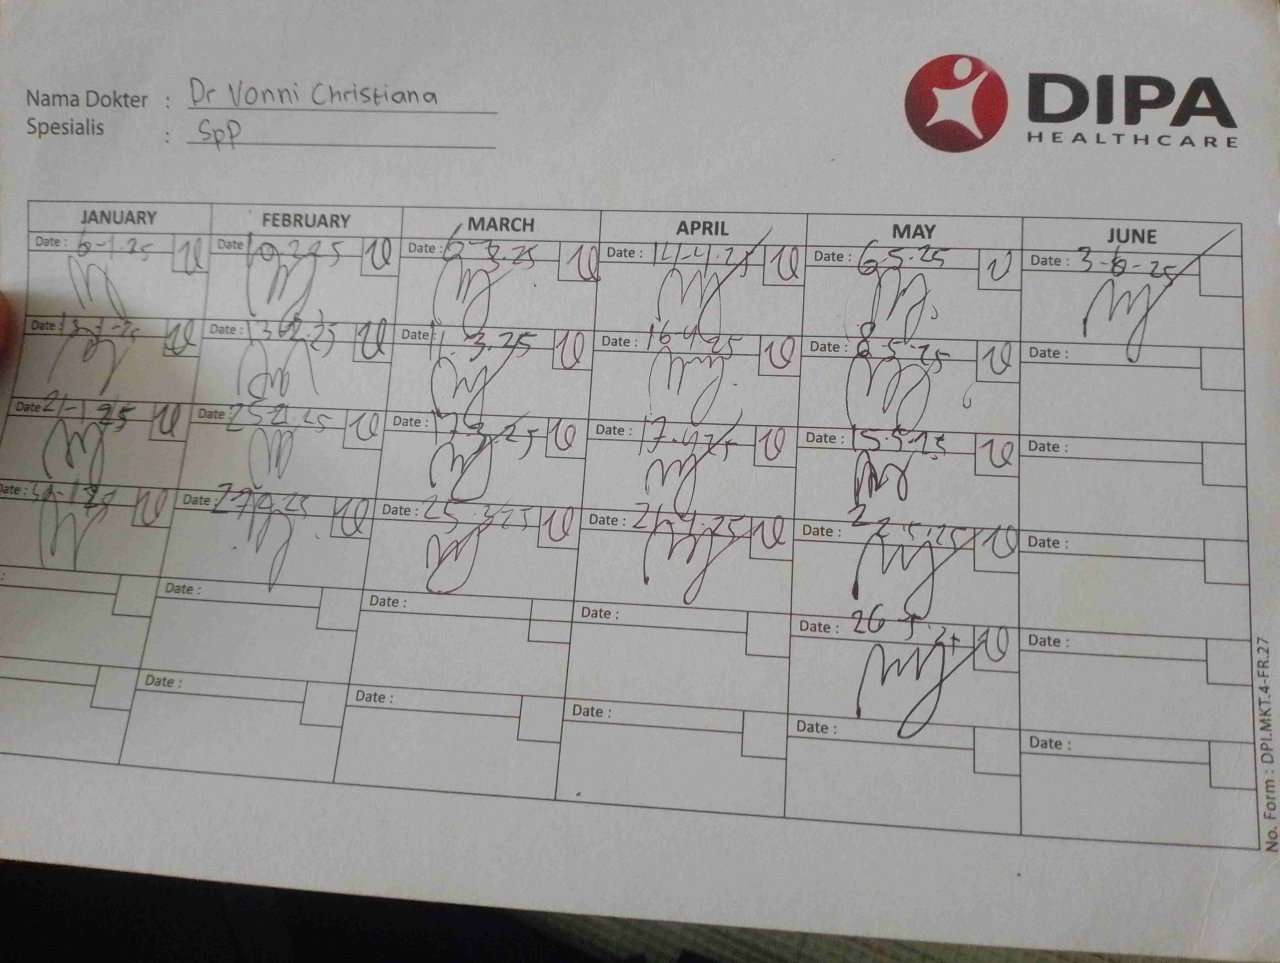 Nama Dokter : Dr Vonni Christiana
Spesialis : SpP
DIPA
HEALTHCARE
JANUARY FEBRUARY MARCH APRIL MAY JUNE
Date : 6-1-25 Date 10.2.25 Date : 6-3.25 Date : 14-4.25 Date : 6.5.25 Date : 3-6-25
Date : 13-1-25 Date : 13.2.25 Date : 11.3.25 Date : 16.4.25 Date : 8.5.25 Date :
Date 21-1.25 Date : 25.2.25 Date : 17.3.25 Date : 17.4.25 Date : 15.5.25 Date :
Date : Date : 27.2.25 Date : 25.3.25 Date : 21.4.25 Date : 22.5.25 Date :
: Date : Date : Date : Date : 26.5.25 Date :
Date : Date : Date : Date : Date :
No. Form : DPI.MKT.4-FR.27